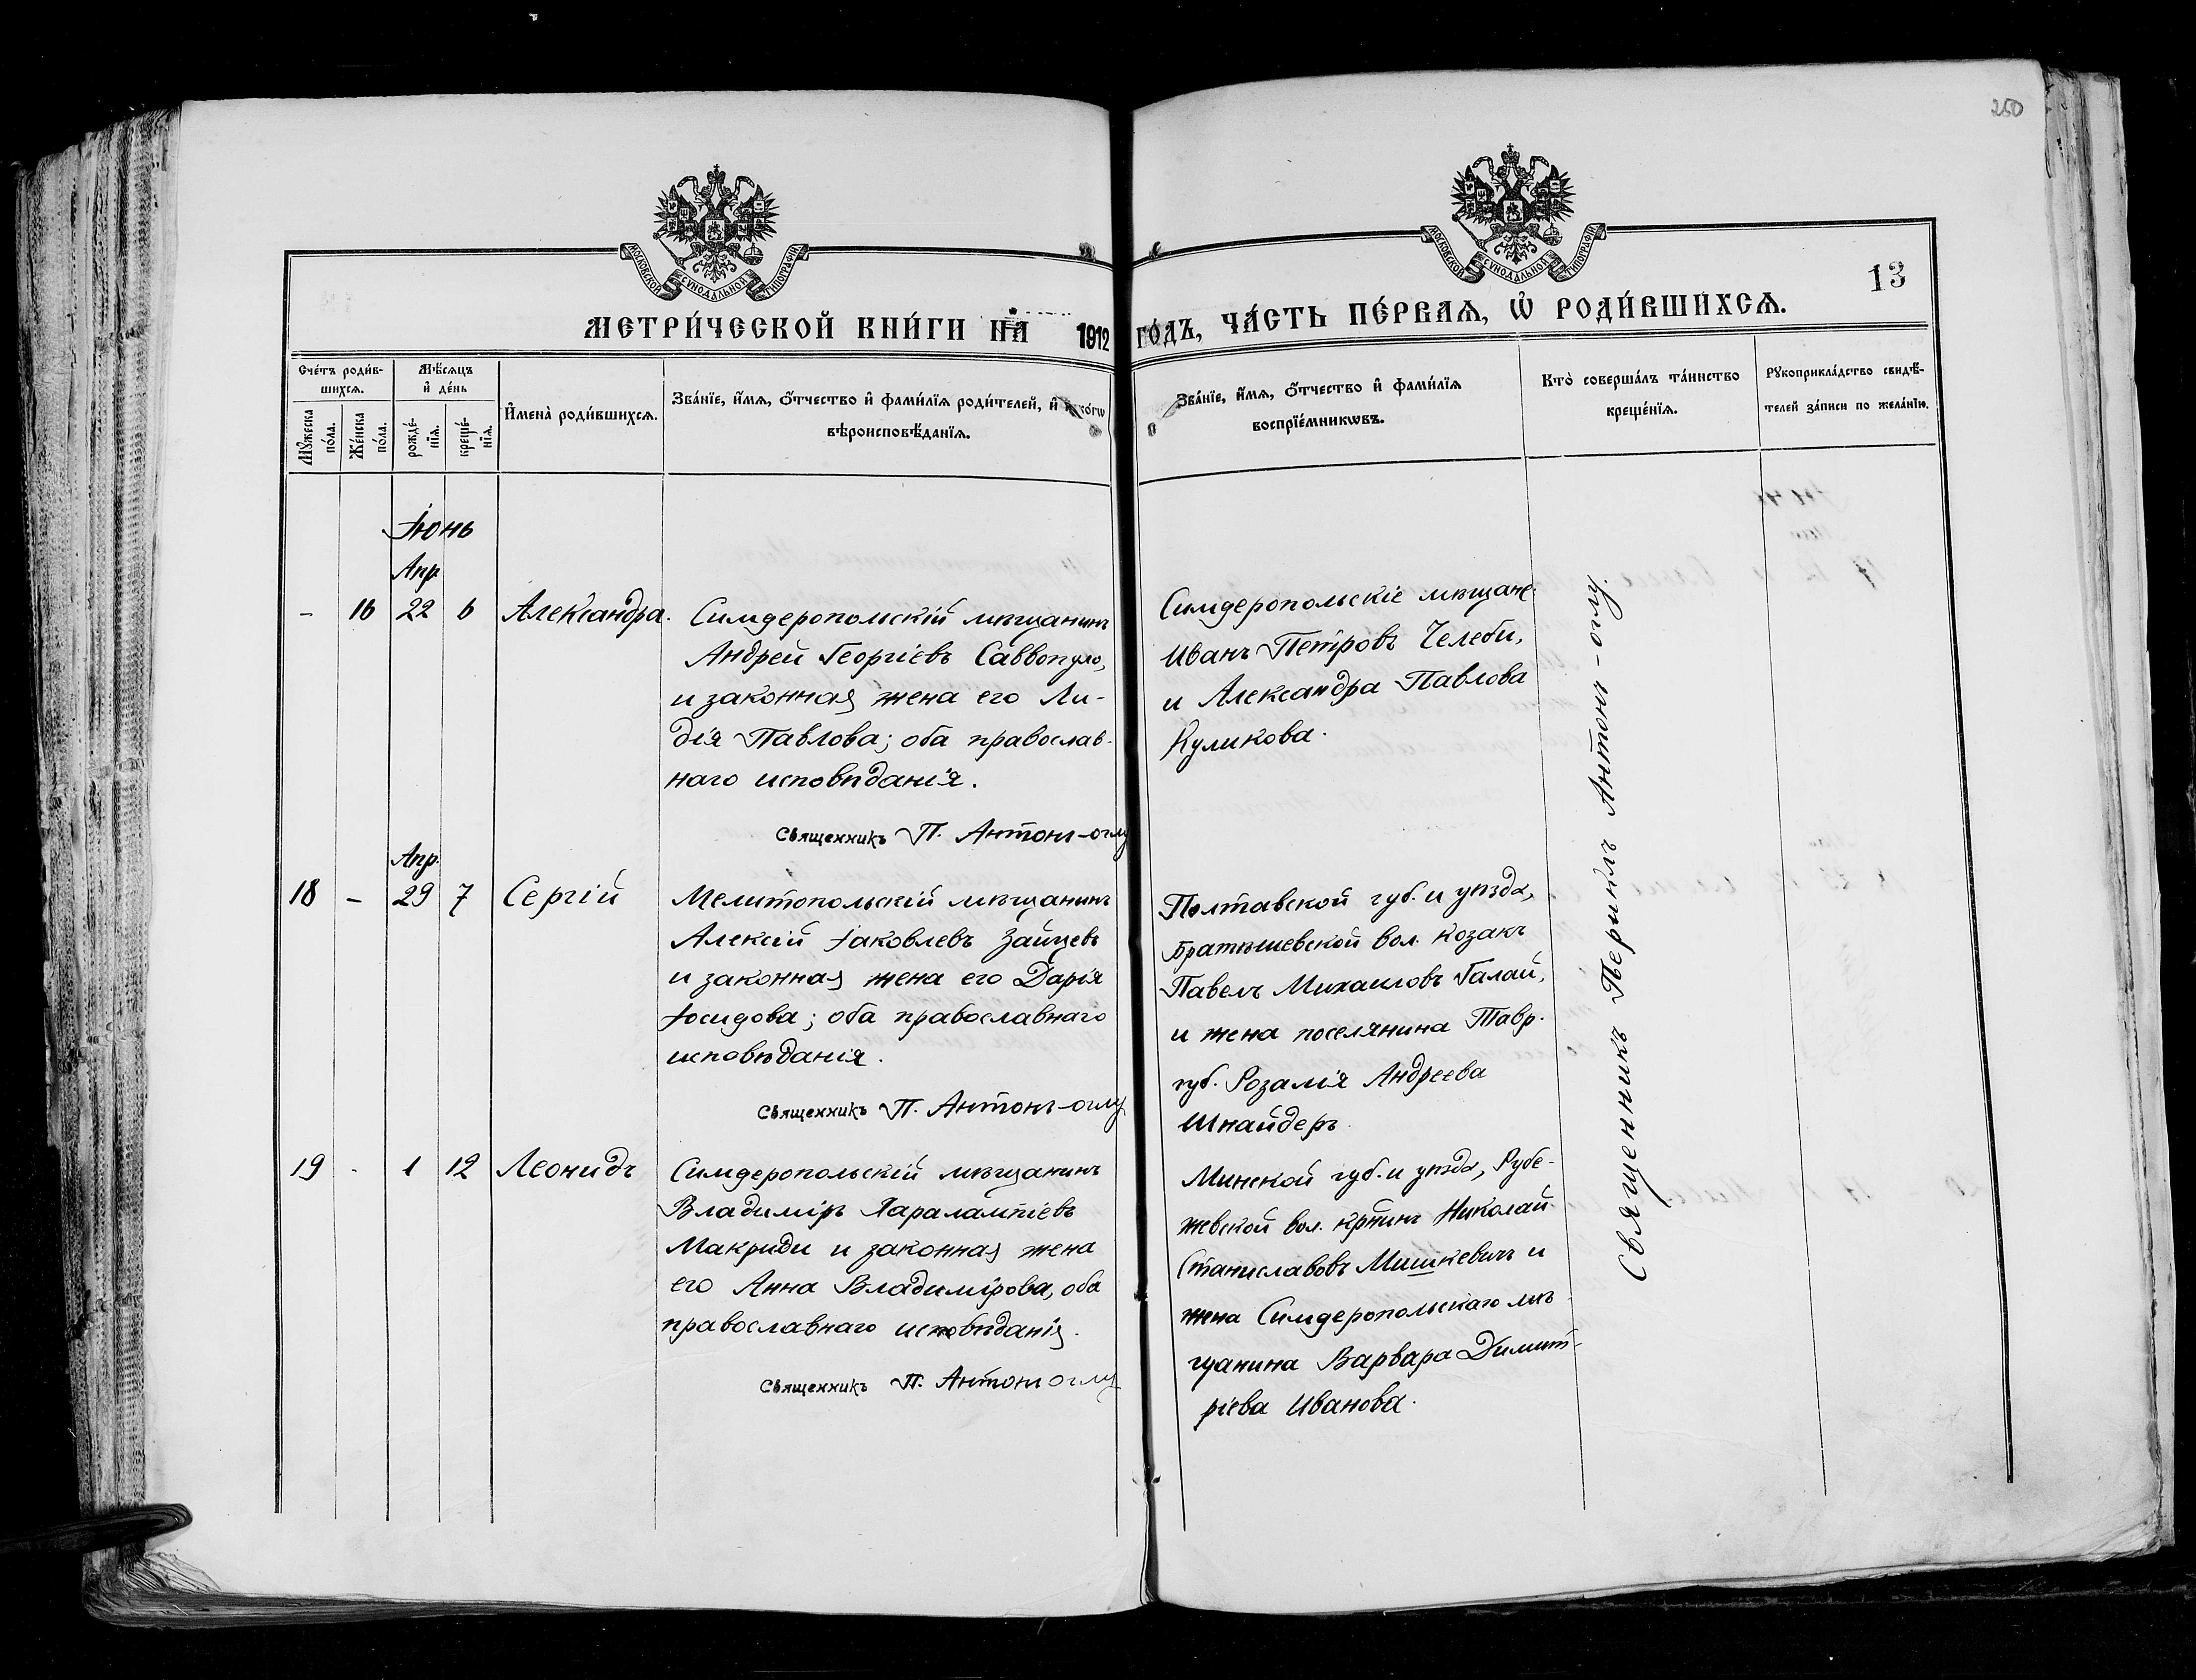 250
МОСКОВСКОЙ СУНОДАЛЬНОЙ ТИПОГРАФІИ
МОСКОВСКОЙ СУНОДАЛЬНОЙ ТИПОГРАФІИ
13
МЕТРИ́ЧЕСКОЙ КНИ́ГИ НА 1912 ГО́ДЪ, ЧА́СТЬ ПЕ́РВАЯ, Ѽ РОДИ́ВШИХСЯ.
Сче́тъ роди́в-
шихся.
Мѣ́сяцъ
и҆ де́нь
Мꙋ́жеска
по́ла.
Же́нска
по́ла.
рожде́-
нїя.
креще́-
нїя.
И҆мена̀ роди́вшихся.
Зва́нїе, и҆́мя, ѻ҆́тчество и҆ фами́лїя роди́телей, и҆ како́гѡ
вѣроисповѣ́данїя.
Зва́нїе, и҆́мя, ѻ҆́тчество и҆ фами́лїя
воспрїе́мникѡвъ.
Кто̀ соверша́лъ та́инство
креще́нїя.
Рꙋкоприкла́дство свидѣ́-
телей за́писи по жела́нїю.
Іюнь
Апр
- 16 22 6 Александра.
Симферопольскій мѣщанинъ
Андрей Георгіевъ Саввопуло,
и законная жена его Ли-
дія Павлова; оба православ-
наго исповѣданія.
Священникъ П. Антонъ-оглу
Симферопольскіе мѣщане:
Иванъ Петровъ Челеби,
и Александра Павлова
Куликова.
Апр.
18 - 29 7 Сергій
Мелитопольскій мѣщанинъ
Алексій Іаковлевъ Зайцевъ
и законная жена его Дарія
Іосифова; оба православнаго
исповѣданія.
Священникъ П. Антонъ-оглу
Полтавской губ. и уѣзда,
Братѣшевской вол. козакъ
Павелъ Михаиловъ Галай,
и жена поселянина Тавр.
губ. Розалія Андреева
Шнайдеръ.
19 - 1 12 Леонидъ
Симферопольскій мѣщанинъ
Владиміръ Харалампіевъ
Макриди и законная жена
его Анна Владимірова, оба
православнаго исповѣданія.
Священникъ П. Антонъ оглу
Минской губ. и уѣзда, Рубе-
жевской вол. кр-тинъ Николай
Станиславовъ Мишкевичъ и
жена Симферопольскаго мѣ-
щанина Варвара Димит-
ріева Иванова.
Священникъ Періилъ Антонъ-оглу.